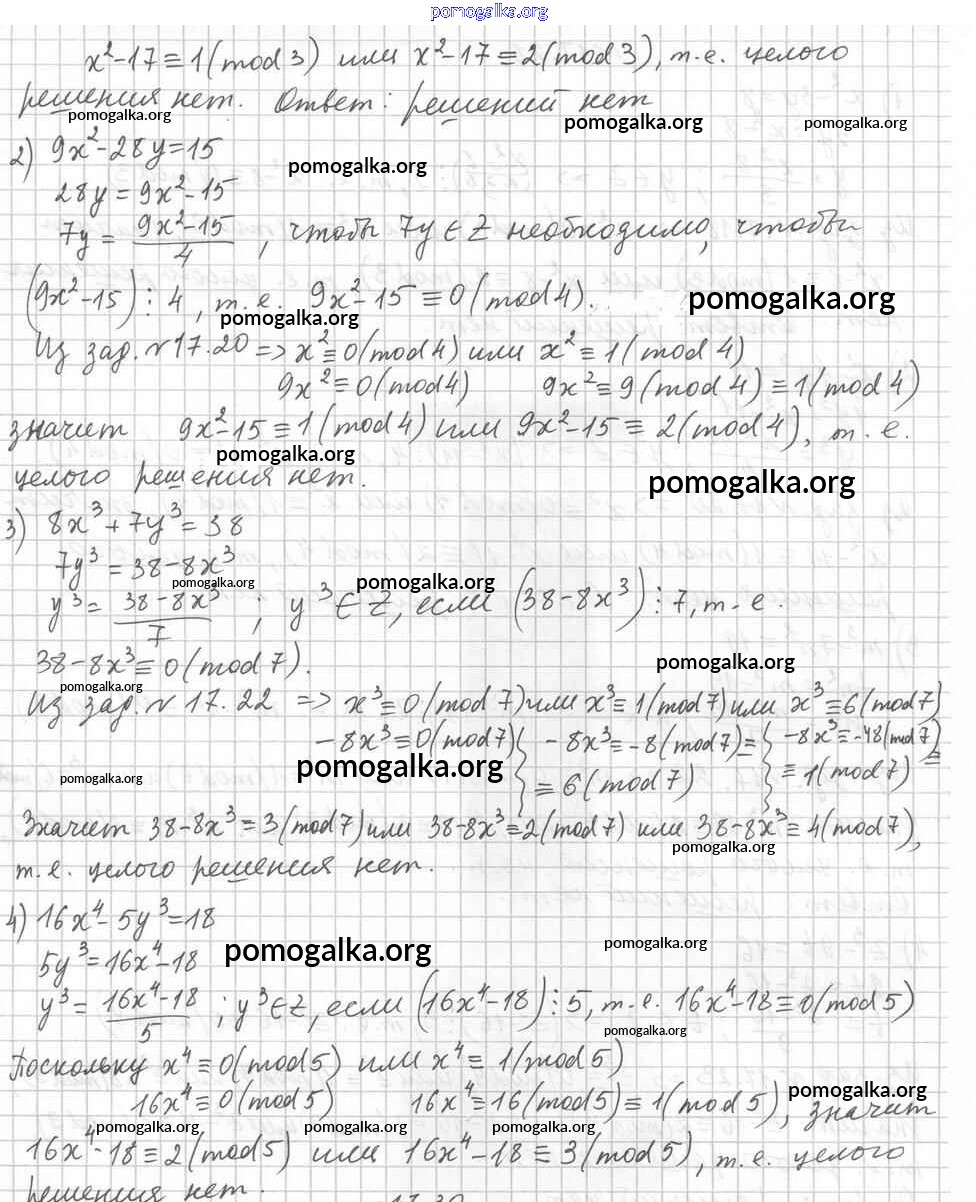 pomogalka.org
x²-17≡1(mod 3) или x²-17≡2(mod 3), т.е. целого
решения нет. Ответ: решений нет
pomogalka.org pomogalka.org pomogalka.org
2) 9x²-28y=15
pomogalka.org
28y=9x²-15
7y = (9x²-15)/4, чтобы 7y∈Z необходимо, чтобы
(9x²-15)⋮4, т.е. 9x²-15≡0(mod 4).
pomogalka.org
pomogalka.org
Из зад. №17.20 => x²≡0(mod 4) или x²≡1(mod 4)
9x²≡0(mod 4) 9x²≡9(mod 4)≡1(mod 4)
значит 9x²-15≡1(mod 4) или 9x²-15≡2(mod 4), т.е.
pomogalka.org
целого решения нет.
pomogalka.org
3) 8x³+7y³=38
7y³=38-8x³
pomogalka.org pomogalka.org
y³=(38-8x³)/7; y³∈Z, если (38-8x³)⋮7, т.е.
38-8x³≡0(mod 7).
pomogalka.org
pomogalka.org
Из зад. №17.22 => x³≡0(mod 7) или x³≡1(mod 7) или x³≡6(mod 7)
-8x³≡0(mod 7) } -8x³≡-8(mod 7)≡ } -8x³≡-48(mod 7)≡
pomogalka.org pomogalka.org
≡6(mod 7) ≡1(mod 7)
Значит 38-8x³≡3(mod 7) или 38-8x³≡2(mod 7) или 38-8x³≡4(mod 7),
pomogalka.org
т.е. целого решения нет.
4) 16x⁴-5y³=18
pomogalka.org pomogalka.org
5y³=16x⁴-18
y³=(16x⁴-18)/5; y³∈Z, если (16x⁴-18)⋮5, т.е. 16x⁴-18≡0(mod 5)
pomogalka.org
Поскольку x⁴≡0(mod 5) или x⁴≡1(mod 5)
pomogalka.org
16x⁴≡0(mod 5) 16x⁴≡16(mod 5)≡1(mod 5), значит
pomogalka.org pomogalka.org pomogalka.org
16x⁴-18≡2(mod 5) или 16x⁴-18≡3(mod 5), т.е. целого
решения нет.